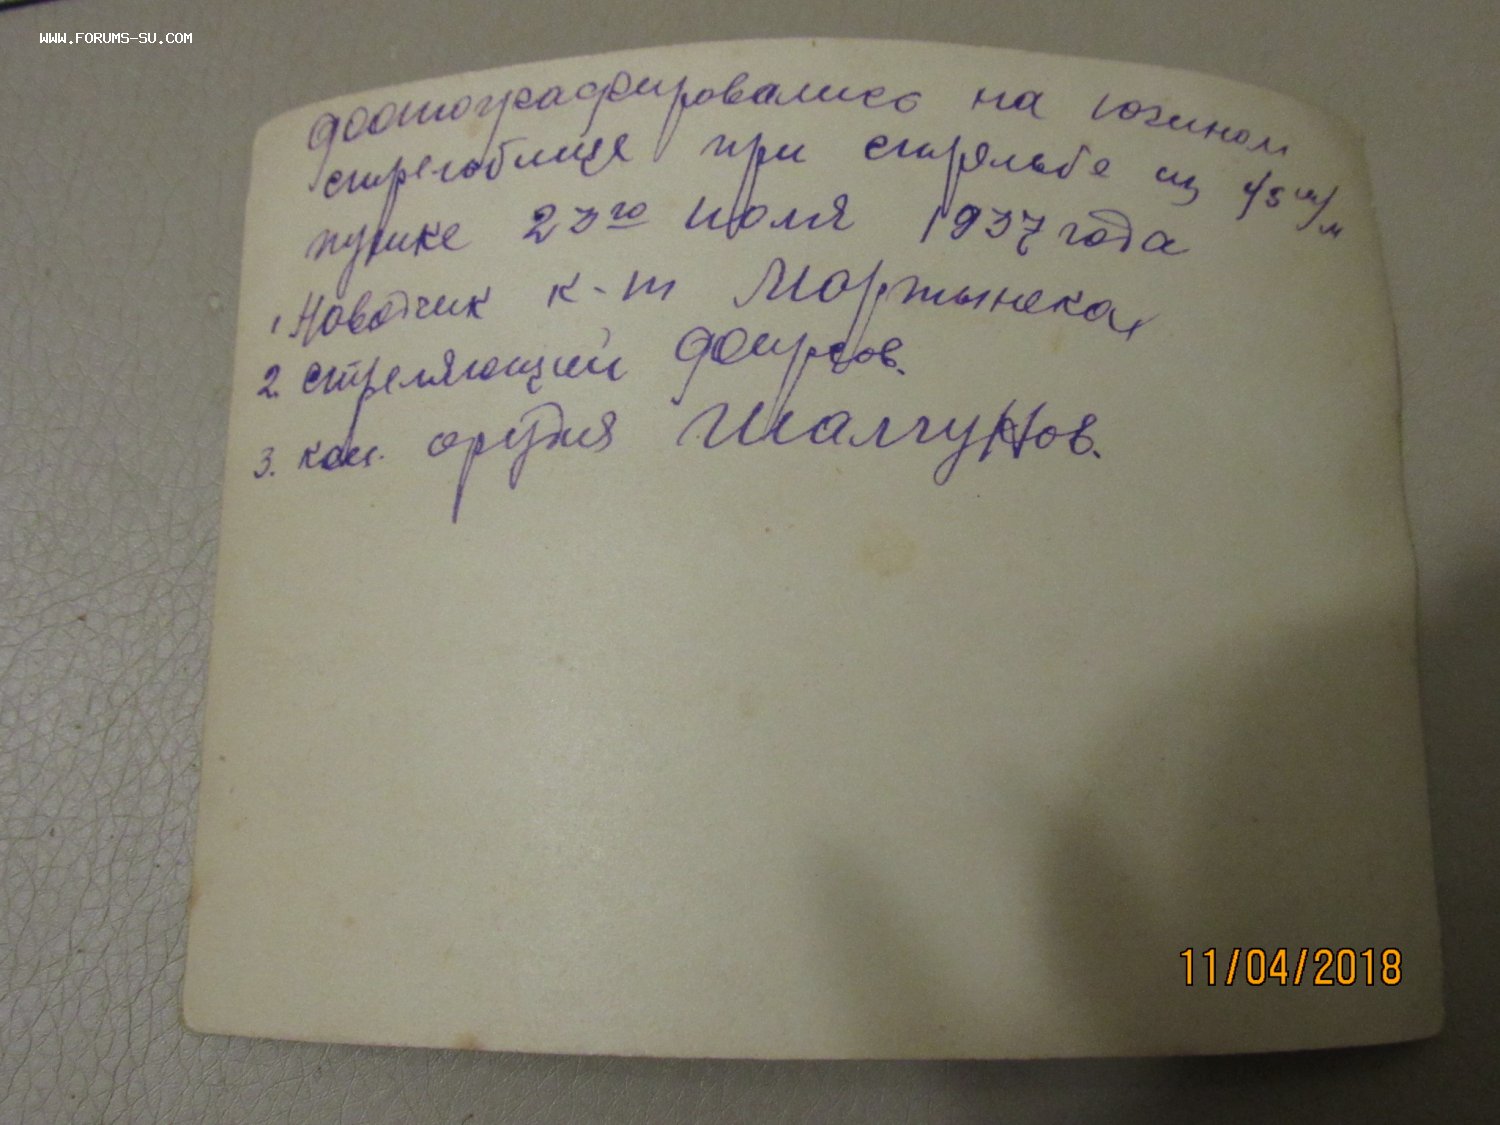 WWW.FORUMS-SU.COM
фотографировались на южном
стрельбище при стрельбе из 45 м/м
пушке 23го июля 1937 года
1. Наводчик к-т
2. стреляющий Фирсов.
3. ком. орудия Шалгунов.
11/04/2018